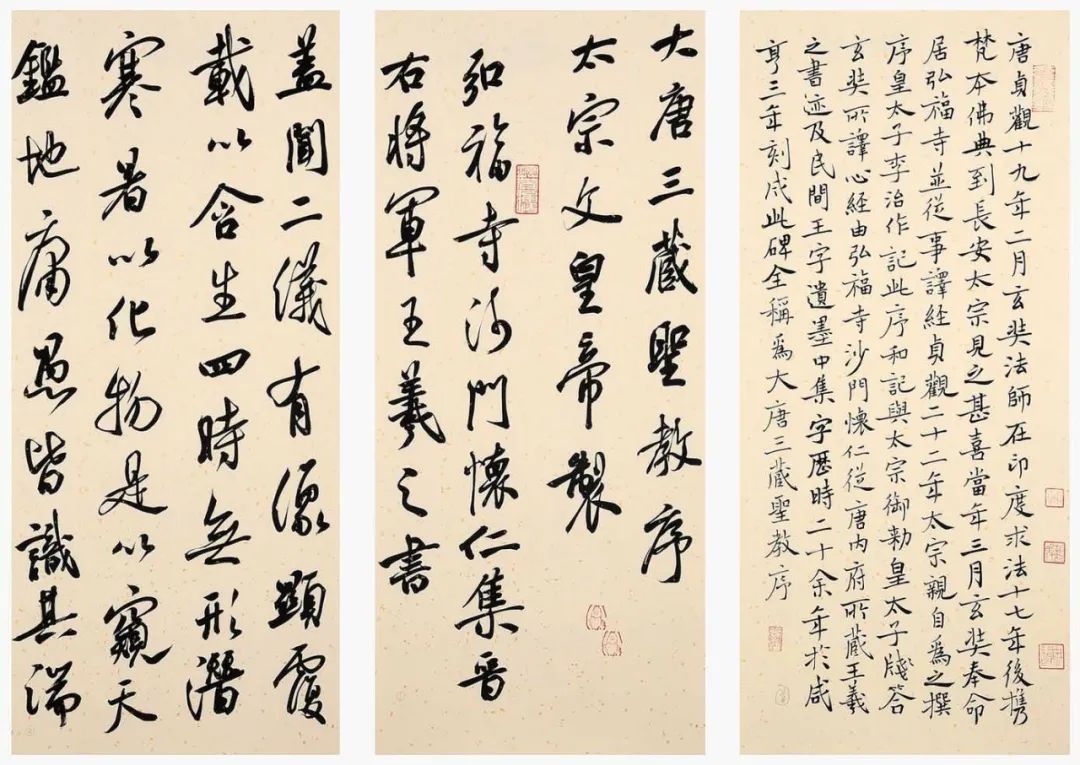 唐貞觀十九年二月玄奘法師在印度求法十七年後携
梵本佛典到長安太宗見之甚喜當年三月玄奘奉命
居弘福寺並從事譯經貞觀二十二年太宗親自為之撰
序皇太子李治作記此序和記與太宗御勅皇太子牋答
玄奘所譯心經由弘福寺沙門懷仁從唐内府所藏王羲
之書迹及民間王字遺墨中集字歷時二十余年於咸
亨三年刻成此碑全稱為大唐三藏聖教序
大唐三藏聖教序
太宗文皇帝製
弘福寺沙門懷仁集晉
右將軍王羲之書
盖聞二儀有像顯覆
載以含生四時無形潛
寒暑以化物是以窺天
鑑地庸愚皆識其端